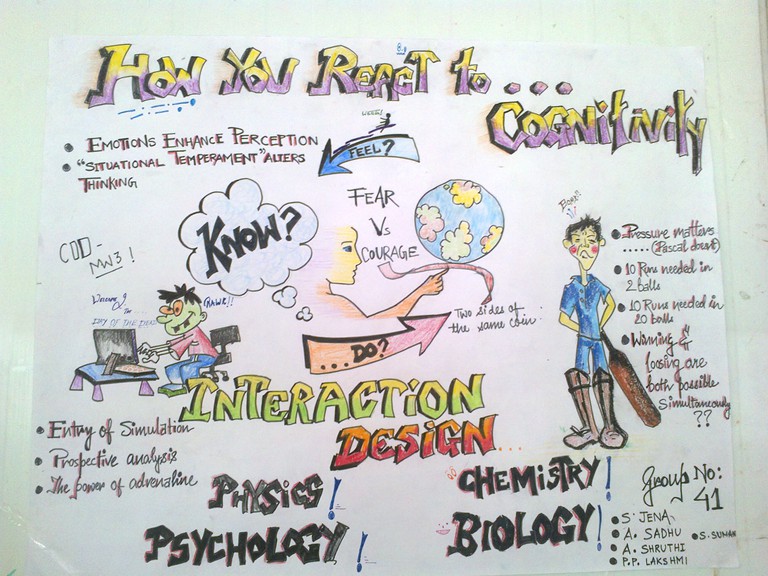 HOW YOU REACT to ...
COGNITIVITY
EMOTIONS ENHANCE PERCEPTION
"SITUATIONAL TEMPERAMENT" ALTERS
THINKING
FEEL?
KNOW?
FEAR
Vs
COURAGE
COD-
MW3!
DAY OF THE DEAD
RAWR!!
Two sides of
the same coin
... DO?
Pressure matters
..... (Pascal doesnt)
10 Runs needed in
2 balls
10 Runs needed in
20 balls
Winning &
loosing are
both possible
simultaneously
??
INTERACTION
DESIGN...
Entry of Simulation
Prospective analysis
The power of adrenaline
PHYSICS!
PSYCHOLOGY!
CHEMISTRY!
BIOLOGY!
Group No:
41
S. JENA
A. SADHU
S. SUMAN
A. SHRUTHI
P.P. LAKSHMI